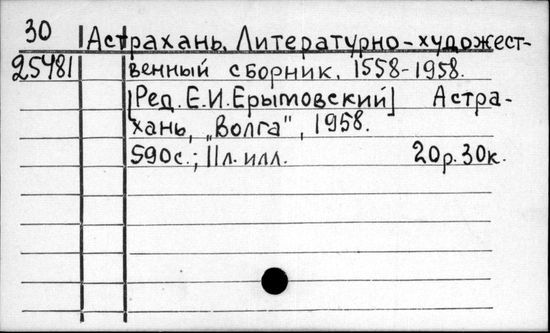 30 Астрахань. Литературно-художест-
25481 венный сборник. 1558-1958.
[Ред. Е.И.Ерымовский] Астра-
хань, „Волга", 1958.
590с.; 11л. илл. 20р. 30к.